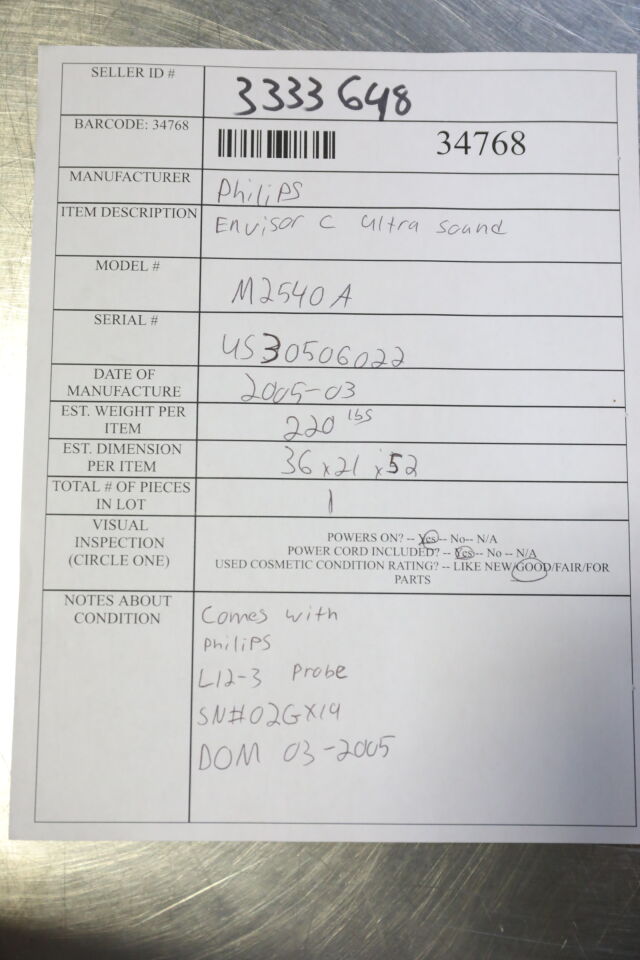 SELLER ID # 3333648
BARCODE: 34768 34768
MANUFACTURER Philips
ITEM DESCRIPTION Envisor C Ultra sound
MODEL # M2540A
SERIAL # US30506022
DATE OF
MANUFACTURE 2005-03
EST. WEIGHT PER
ITEM 220 lbs
EST. DIMENSION
PER ITEM 36 x 21 x 52
TOTAL # OF PIECES
IN LOT 1
VISUAL
INSPECTION
(CIRCLE ONE)
POWERS ON? -- Yes-- No-- N/A
POWER CORD INCLUDED? -- Yes-- No -- N/A
USED COSMETIC CONDITION RATING? -- LIKE NEW/GOOD/FAIR/FOR
PARTS
NOTES ABOUT
CONDITION
Comes with
Philips
L12-3 Probe
SN#02GX19
DOM 03-2005